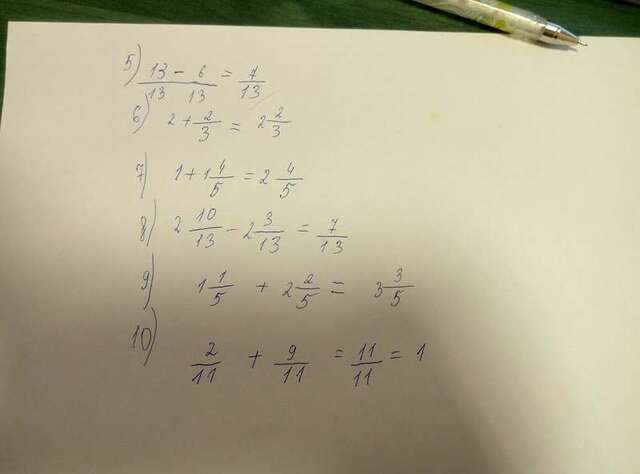 5) 13/13 - 6/13 = 7/13
6) 2 + 2/3 = 2 2/3
7) 1 + 1 4/5 = 2 4/5
8) 2 10/13 - 2 3/13 = 7/13
9) 1 1/5 + 2 2/5 = 3 3/5
10) 2/11 + 9/11 = 11/11 = 1